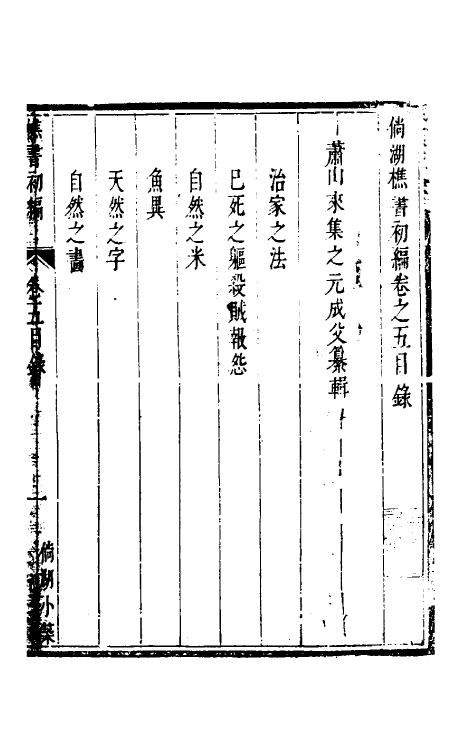 倘湖樵書初編卷之五目錄
蕭山來集之元成父纂輯
治家之法
已死之軀殺賊報怨
自然之米
魚異
天然之字
自然之畵
樵書初編
卷之五目錄
一
倘湖小築